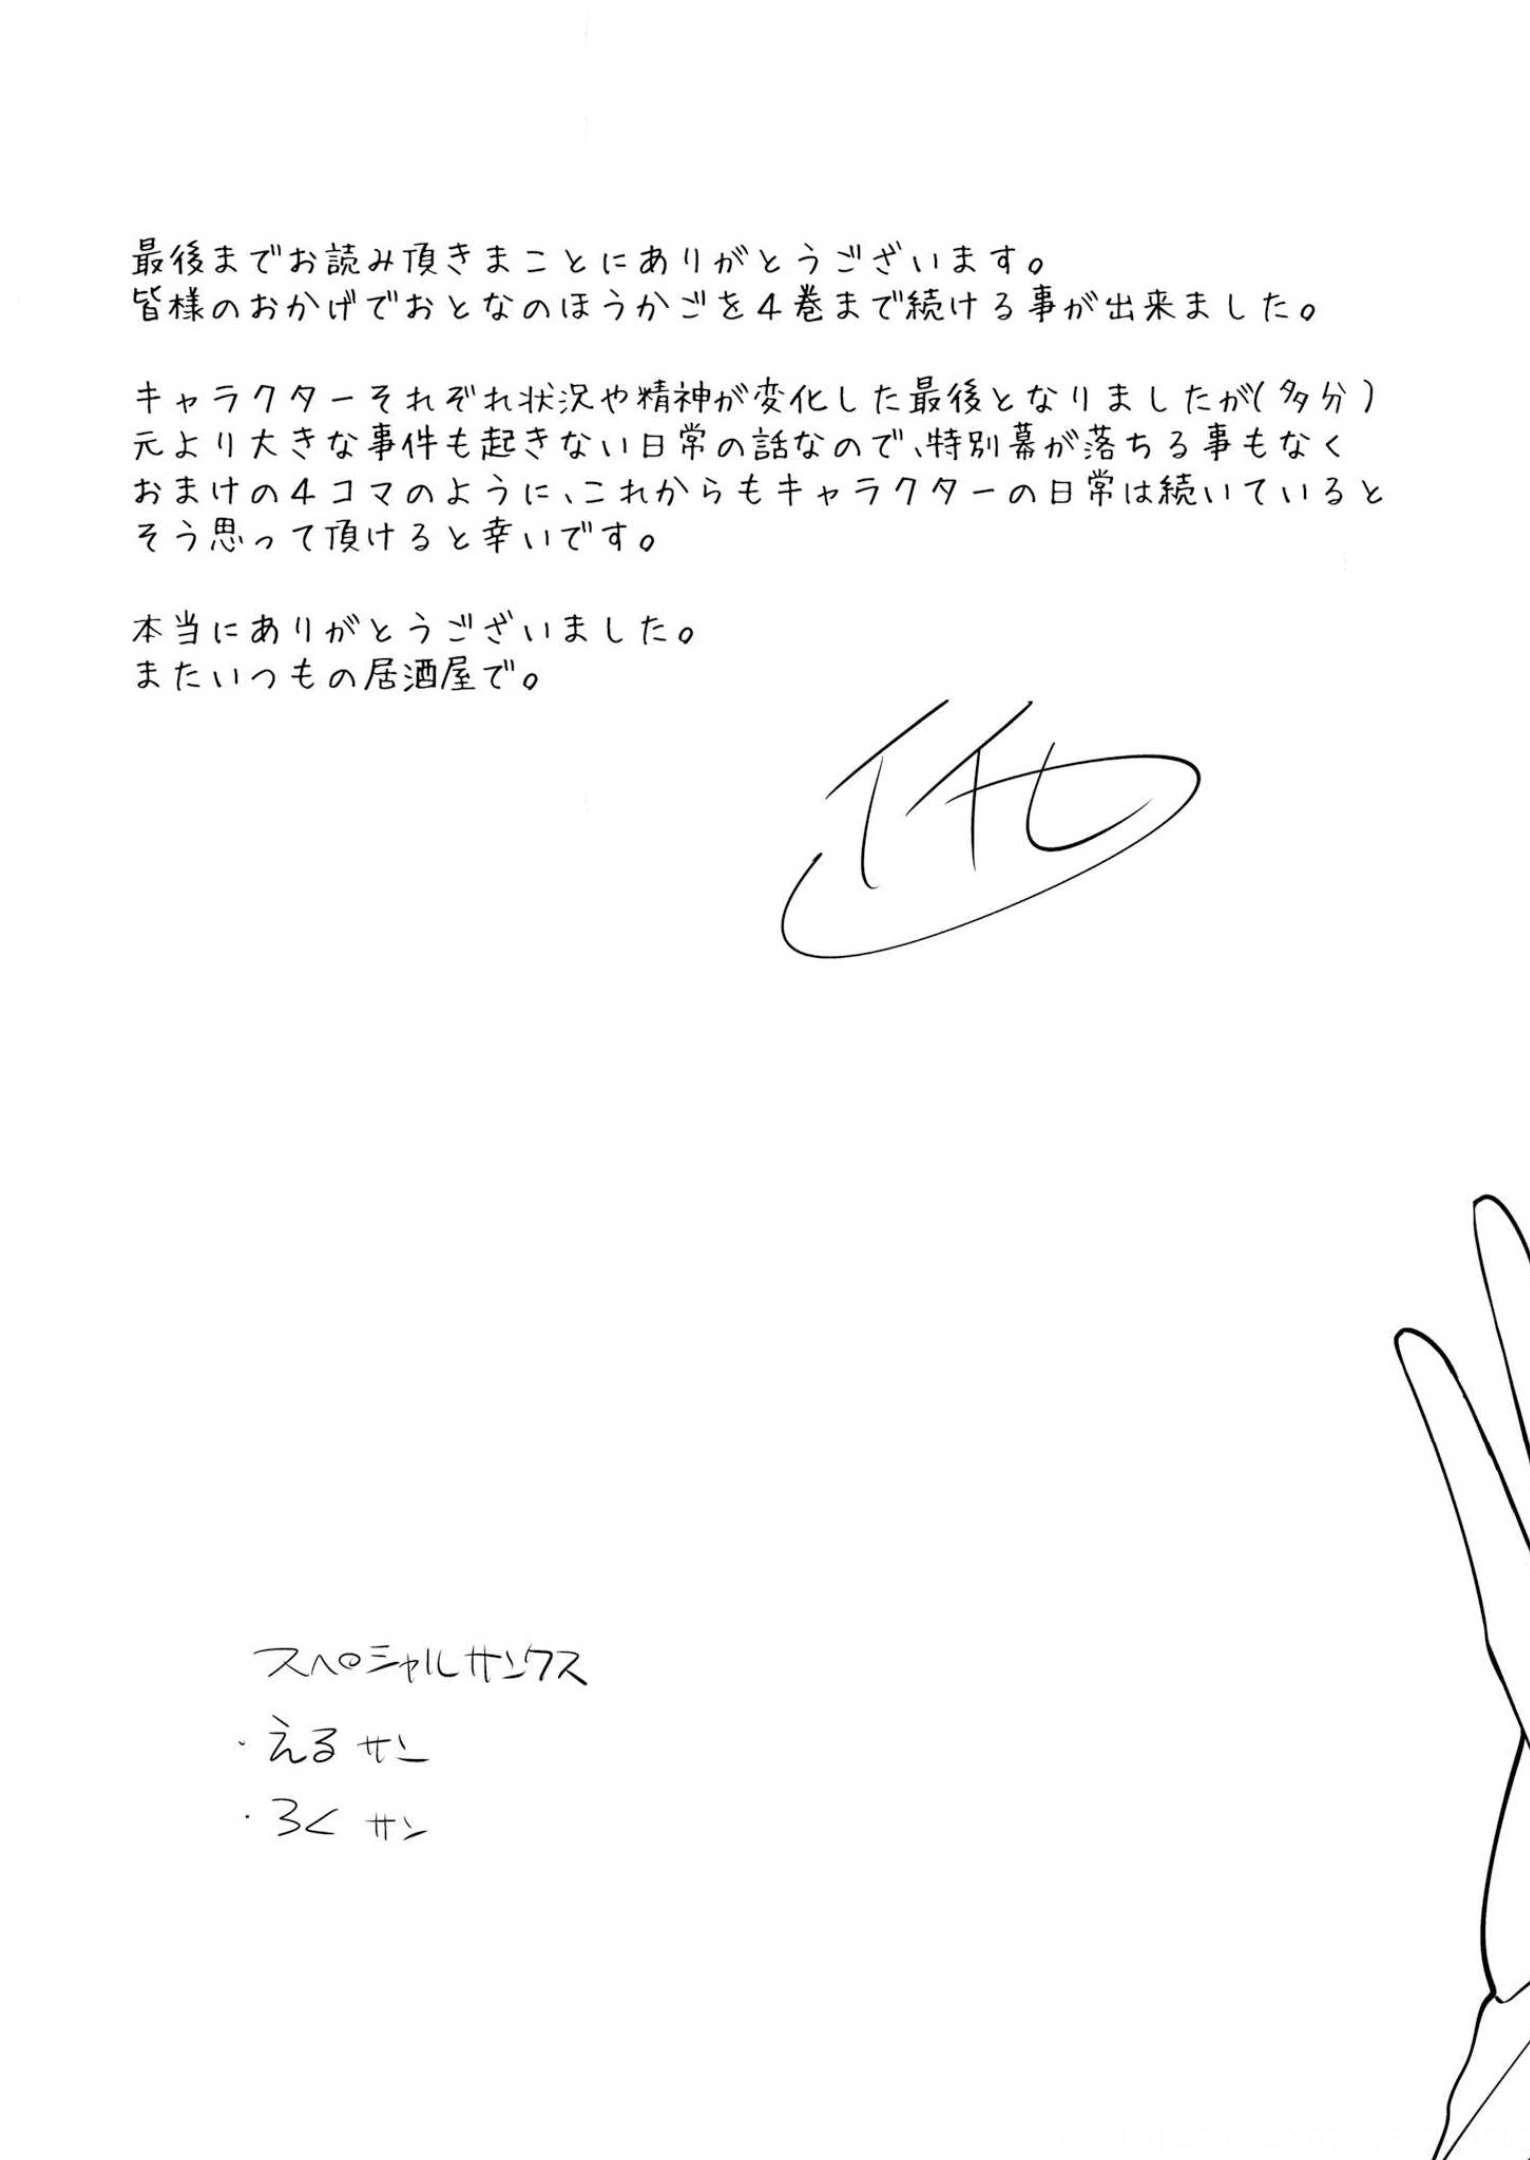 最後までお読み頂きまことにありがとうございます。
皆様のおかげでおとなのほうかごを4巻まで続ける事が出来ました。
キャラクターそれぞれ状況や精神が変化した最後となりましたが(多分)
元より大きな事件も起きない日常の話なので、特別幕が落ちる事もなく
おまけの4コマのように、これからもキャラクターの日常は続いていると
そう思って頂けると幸いです。
本当にありがとうございました。
またいつもの居酒屋で。
スペシャルサンクス
・えるサン
・ろくサン